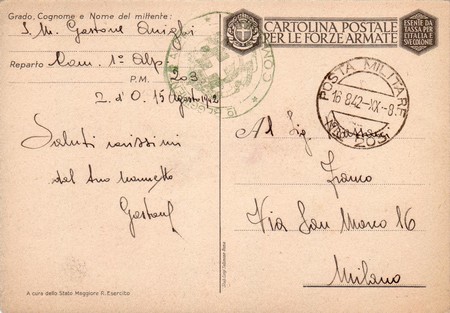 Grado, Cognome e Nome del mittente:
S. M. Gastone
Reparto Com. 1° Alp
P.M. 203
Z. d' O. 15 Agosto 1942
Saluti carissimi
dal tuo
CARTOLINA POSTALE
PER LE FORZE ARMATE
ESENTE DA
TASSA PER
L'ITALIA E
SVE COLONIE
POSTA MILITARE
16 8.42-XX-8.
Nº 203
Al Sig.
Franco
Via San Marco 16
Milano
A cura dello Stato Maggiore R. Esercito